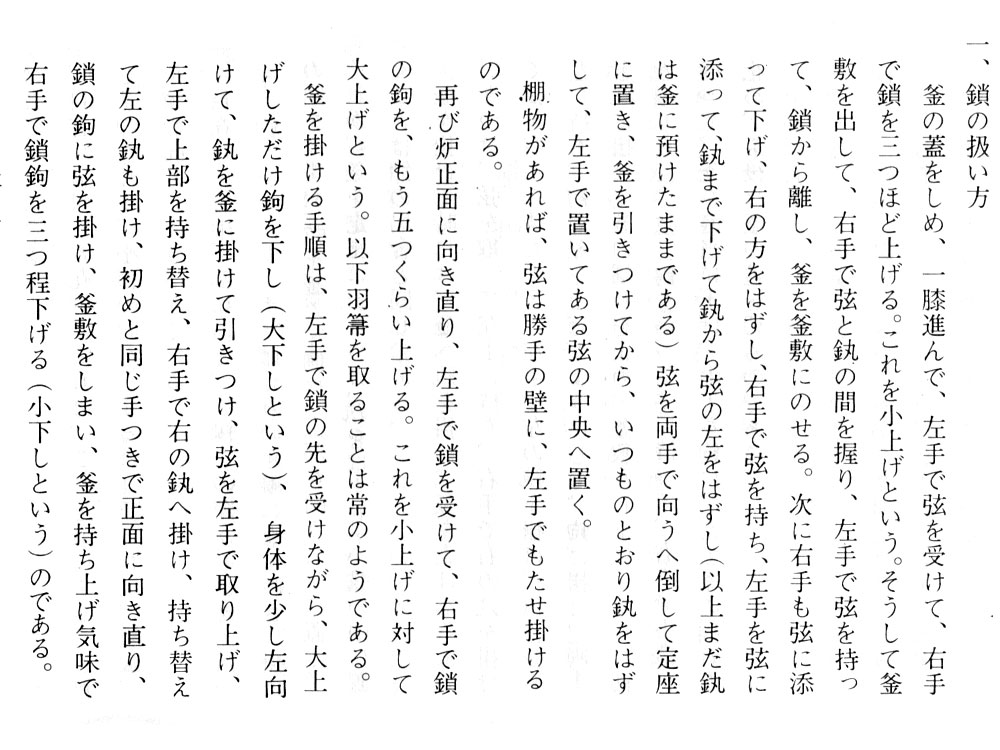 一、鎖の扱い方
釜の蓋をしめ、一膝進んで、左手で弦を受けて、右手
で鎖を三つほど上げる。これを小上げという。そうして釜
敷を出して、右手で弦と釻の間を握り、左手で弦を持っ
て、鎖から離し、釜を釜敷にのせる。次に右手も弦に添
って下げ、右の方をはずし、右手で弦を持ち、左手を弦に
添って、釻まで下げて釻から弦の左をはずし（以上まだ釻
は釜に預けたままである）弦を両手で向うへ倒して定座
に置き、釜を引きつけてから、いつものとおり釻をはず
して、左手で置いてある弦の中央へ置く。
棚物があれば、弦は勝手の壁に、左手でもたせ掛ける
のである。
再び炉正面に向き直り、左手で鎖を受けて、右手で鎖
の鉤を、もう五つくらい上げる。これを小上げに対して
大上げという。以下羽箒を取ることは常のようである。
釜を掛ける手順は、左手で鎖の先を受けながら、大上
げしただけ鉤を下し（大下しという）、身体を少し左向
けて、釻を釜に掛けて引きつけ、弦を左手で取り上げ、
左手で上部を持ち替え、右手で右の釻へ掛け、持ち替え
て左の釻も掛け、初めと同じ手つきで正面に向き直り、
鎖の鉤に弦を掛け、釜敷をしまい、釜を持ち上げ気味で
右手で鎖鉤を三つ程下げる（小下しという）のである。